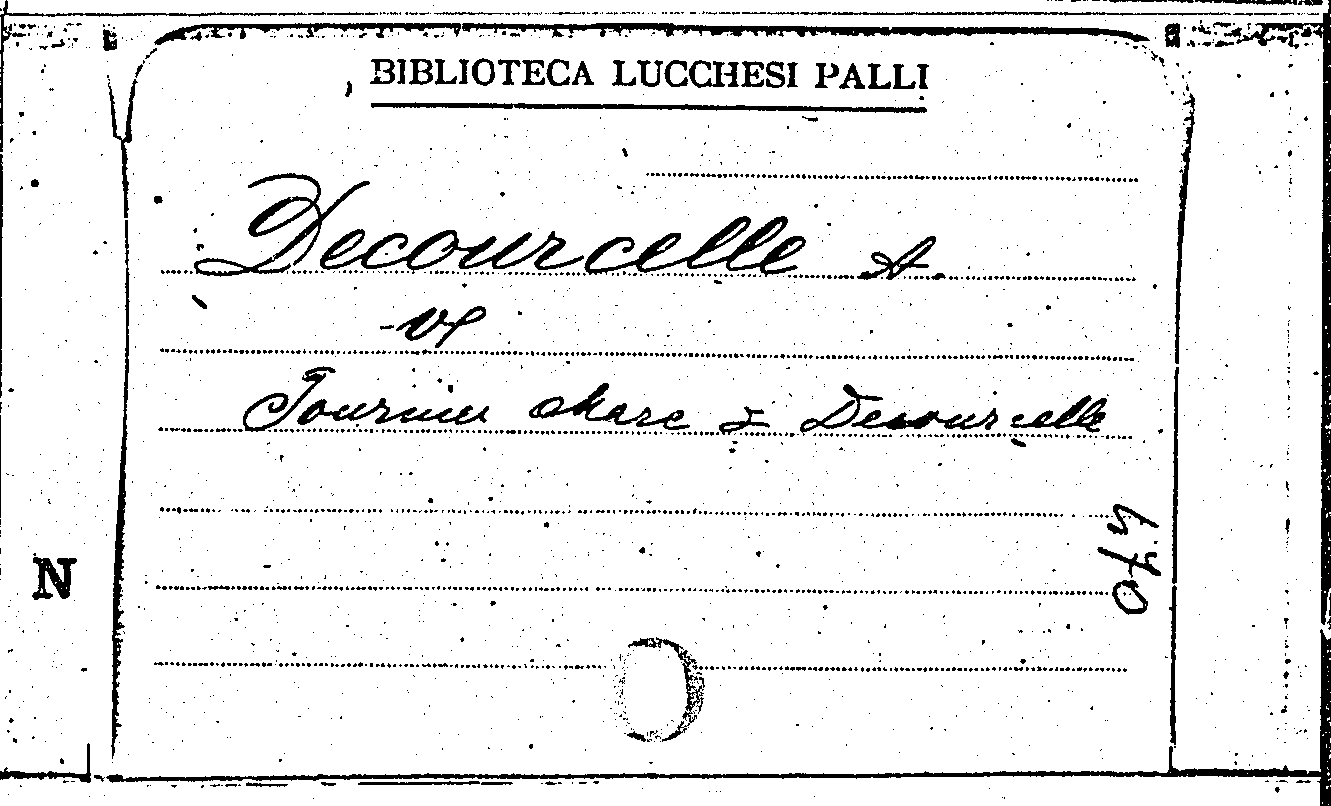 BIBLIOTECA LUCCHESI PALLI
Decourcelle A.
Fournier Marc & Decourcelle
N